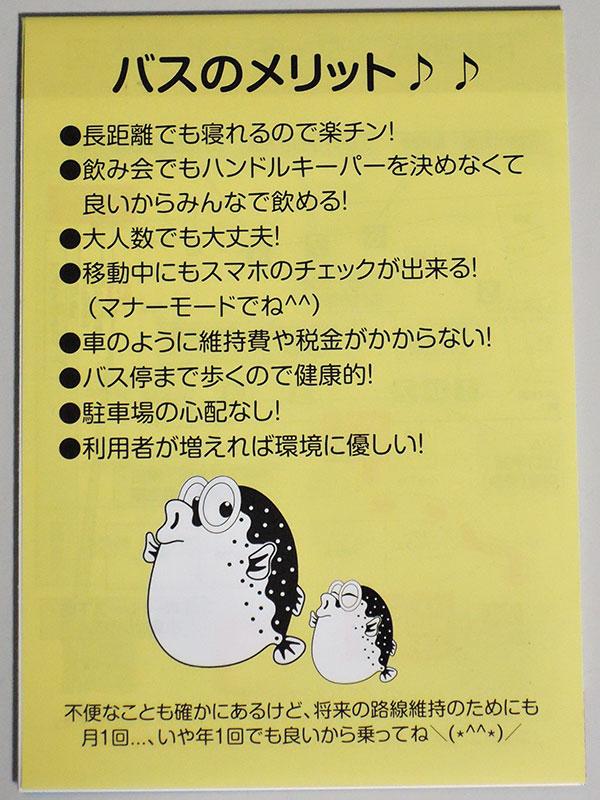 バスのメリット♪♪
●長距離でも寝れるので楽チン!
●飲み会でもハンドルキーパーを決めなくて
良いからみんなで飲める!
●大人数でも大丈夫!
●移動中にもスマホのチェックが出来る!
（マナーモードでね^^）
●車のように維持費や税金がかからない!
●バス停まで歩くので健康的!
●駐車場の心配なし!
●利用者が増えれば環境に優しい!
不便なことも確かにあるけど、将来の路線維持のためにも
月1回…、いや年1回でも良いから乗ってね＼(*^^*)／